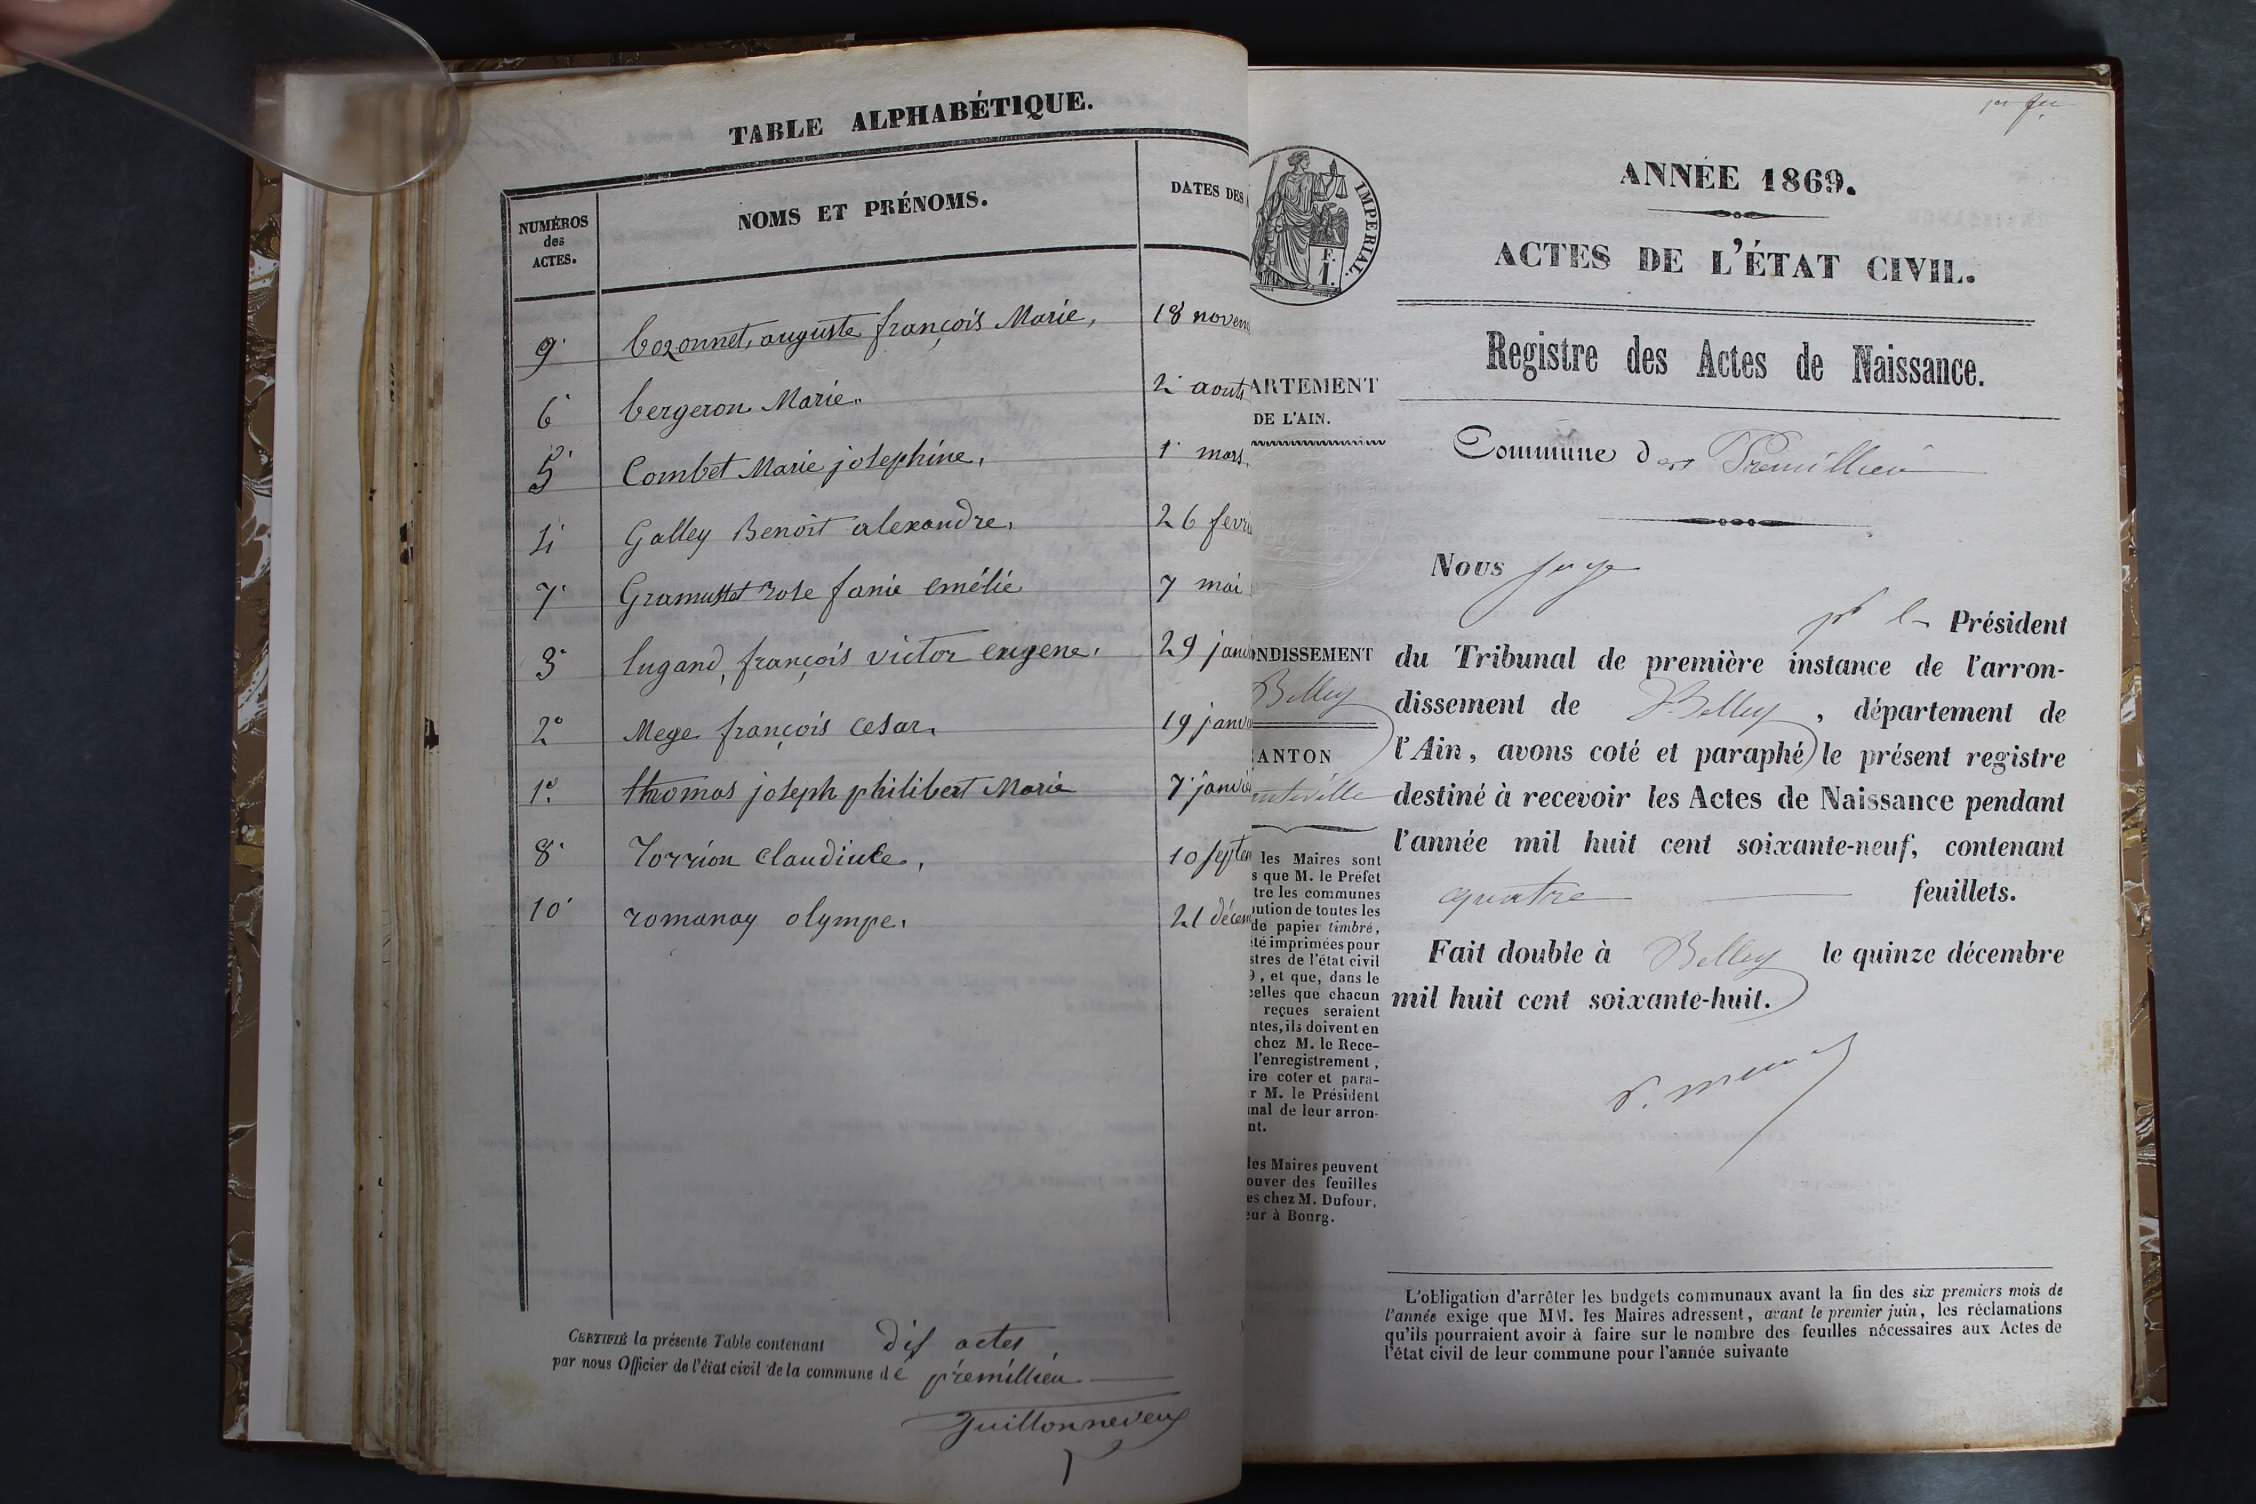 TABLE ALPHABÉTIQUE.
NUMÉROS des ACTES. NOMS ET PRÉNOMS. DATES DES
9. bozonnet, auguste françois Marie, 18 novem
6. bergeron Marie. 2 aout
5. Combet Marie josephine, 1 mars
4. Galley Benoit alexandre, 26 fevri
7. Gramusset rose fanie emélie 7 mai
3. lugand, françois victor eugene, 29 janvi
2. Mege françois cesar, 19 janvi
1. thomas joseph philibert Marie 7 janvi
8. Torrion claudine, 10 septem
10. romanay olympe, 21 décem
CERTIFIÉ la présente Table contenant dix actes
par nous Officier de l'état civil de la commune de prémillieu
Guillonneveu
IMPERIAL.
F.
1.
ARTEMENT
DE L'AIN.
ONDISSEMENT
Belley
ANTON
uteville
les Maires sont
s que M. le Préfet
tre les communes
ution de toutes les
de papier timbré,
té imprimées pour
stres de l'état civil
9, et que, dans le
celles que chacun
reçues seraient
ntes, ils doivent en
chez M. le Rece-
l'enregistrement,
ire coter et para-
r M. le Président
nal de leur arron-
nt.
les Maires peuvent
ouver des feuilles
es chez M. Dufour,
eur à Bourg.
ANNÉE 1869.
ACTES DE L'ÉTAT CIVIL.
Registre des Actes de Naissance.
Commune de Premillieu
Nous juge
pr le Président
du Tribunal de première instance de l'arron-
dissement de Belley, département de
l'Ain, avons coté et paraphé le présent registre
destiné à recevoir les Actes de Naissance pendant
l'année mil huit cent soixante-neuf, contenant
quatre feuillets.
Fait double à Belley le quinze décembre
mil huit cent soixante-huit.
L'obligation d'arrêter les budgets communaux avant la fin des six premiers mois de
l'année exige que MM. les Maires adressent, avant le premier juin, les réclamations
qu'ils pourraient avoir à faire sur le nombre des feuilles nécessaires aux Actes de
l'état civil de leur commune pour l'année suivante